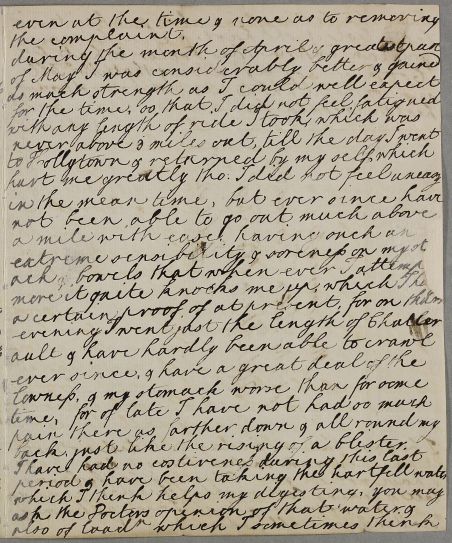 even at the time & none as to removing
the complaint.
during the month of April & great part
of May I was considerably better & gained
as much strength as I could well expect
for the time, so that I did not feel fatigued
with any length of ride I took, which was
never above 3 miles out, till the day I went
to Pollytown & returned by my self which
hurt me greatly tho: I did not feel uneasy
in the mean time, but ever since have
not been able to go out much above
a mile with ease, having such an
extreme sensibility & soreness on my st
ach & bowels that when ever I attemp
more it quite knocks me up, which I ha
a certain proof of at present, for on
evening I went just the length of
ault & have hardly been able to crawl
ever since, & have a great deal of the
lowness, & my stomach worse than for some
time, for of late I have not had so much
pain there as farther down & all round my
back, just like the rising of a blester.
I have had no costiveness during this last
period & have been taking the hartfell water
which I think helps my digesting, you may
ask the Doctors opinion of that water &
also of laadm which I sometimes think